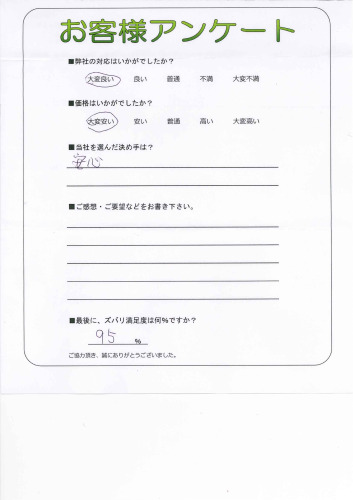 お客様アンケート
■弊社の対応はいかがでしたか？
大変良い 良い 普通 不満 大変不満
■価格はいかがでしたか？
大変安い 安い 普通 高い 大変高い
■当社を選んだ決め手は？
安心
■ご感想・ご要望などをお書き下さい。
■最後に、ズバリ満足度は何％ですか？
95 ％
ご協力頂き、誠にありがとうございました。